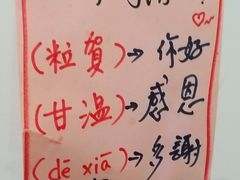 (粒賀)→你好
(甘溫)→感恩
(dē xiā)→多謝